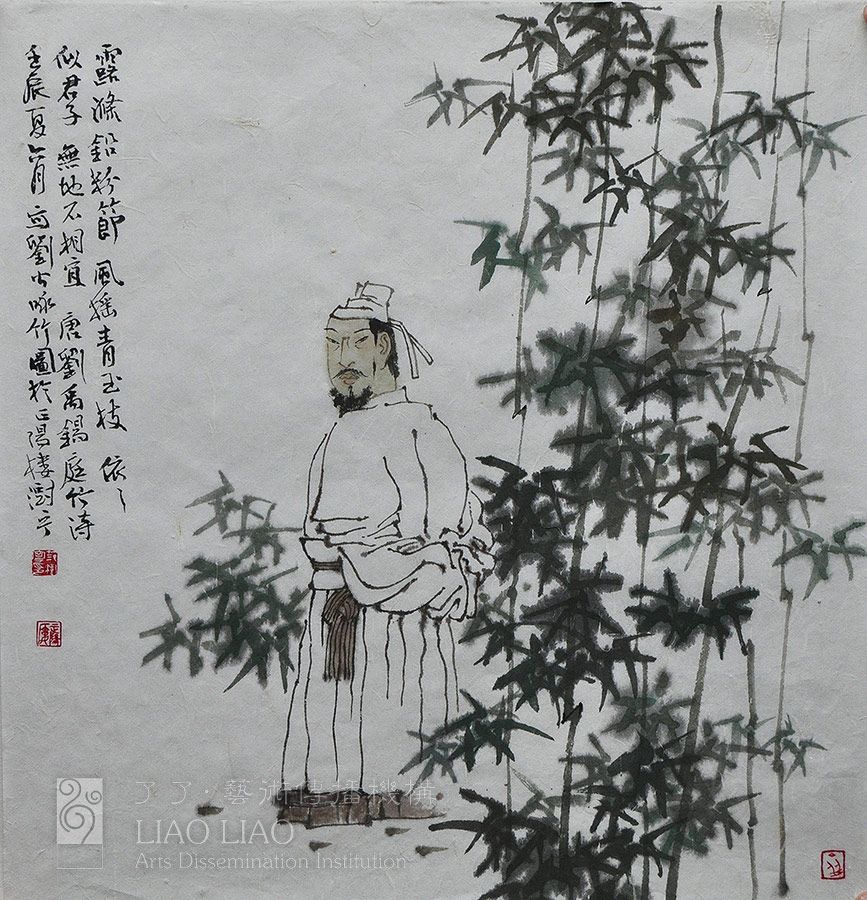 露滌鉛粉節風搖青玉枝依〻
似君子無地不相宜唐劉禹錫庭竹詩
壬辰夏六月寫劉公詠竹圖於正陽樓
了了·藝術傳播機構
LIAO LIAO
Arts Dissemination Institution